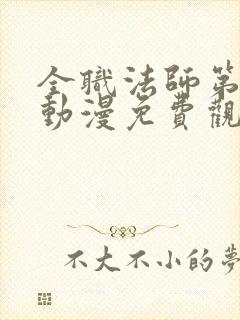 全職法師第
動漫免費觀
不大不小的夢